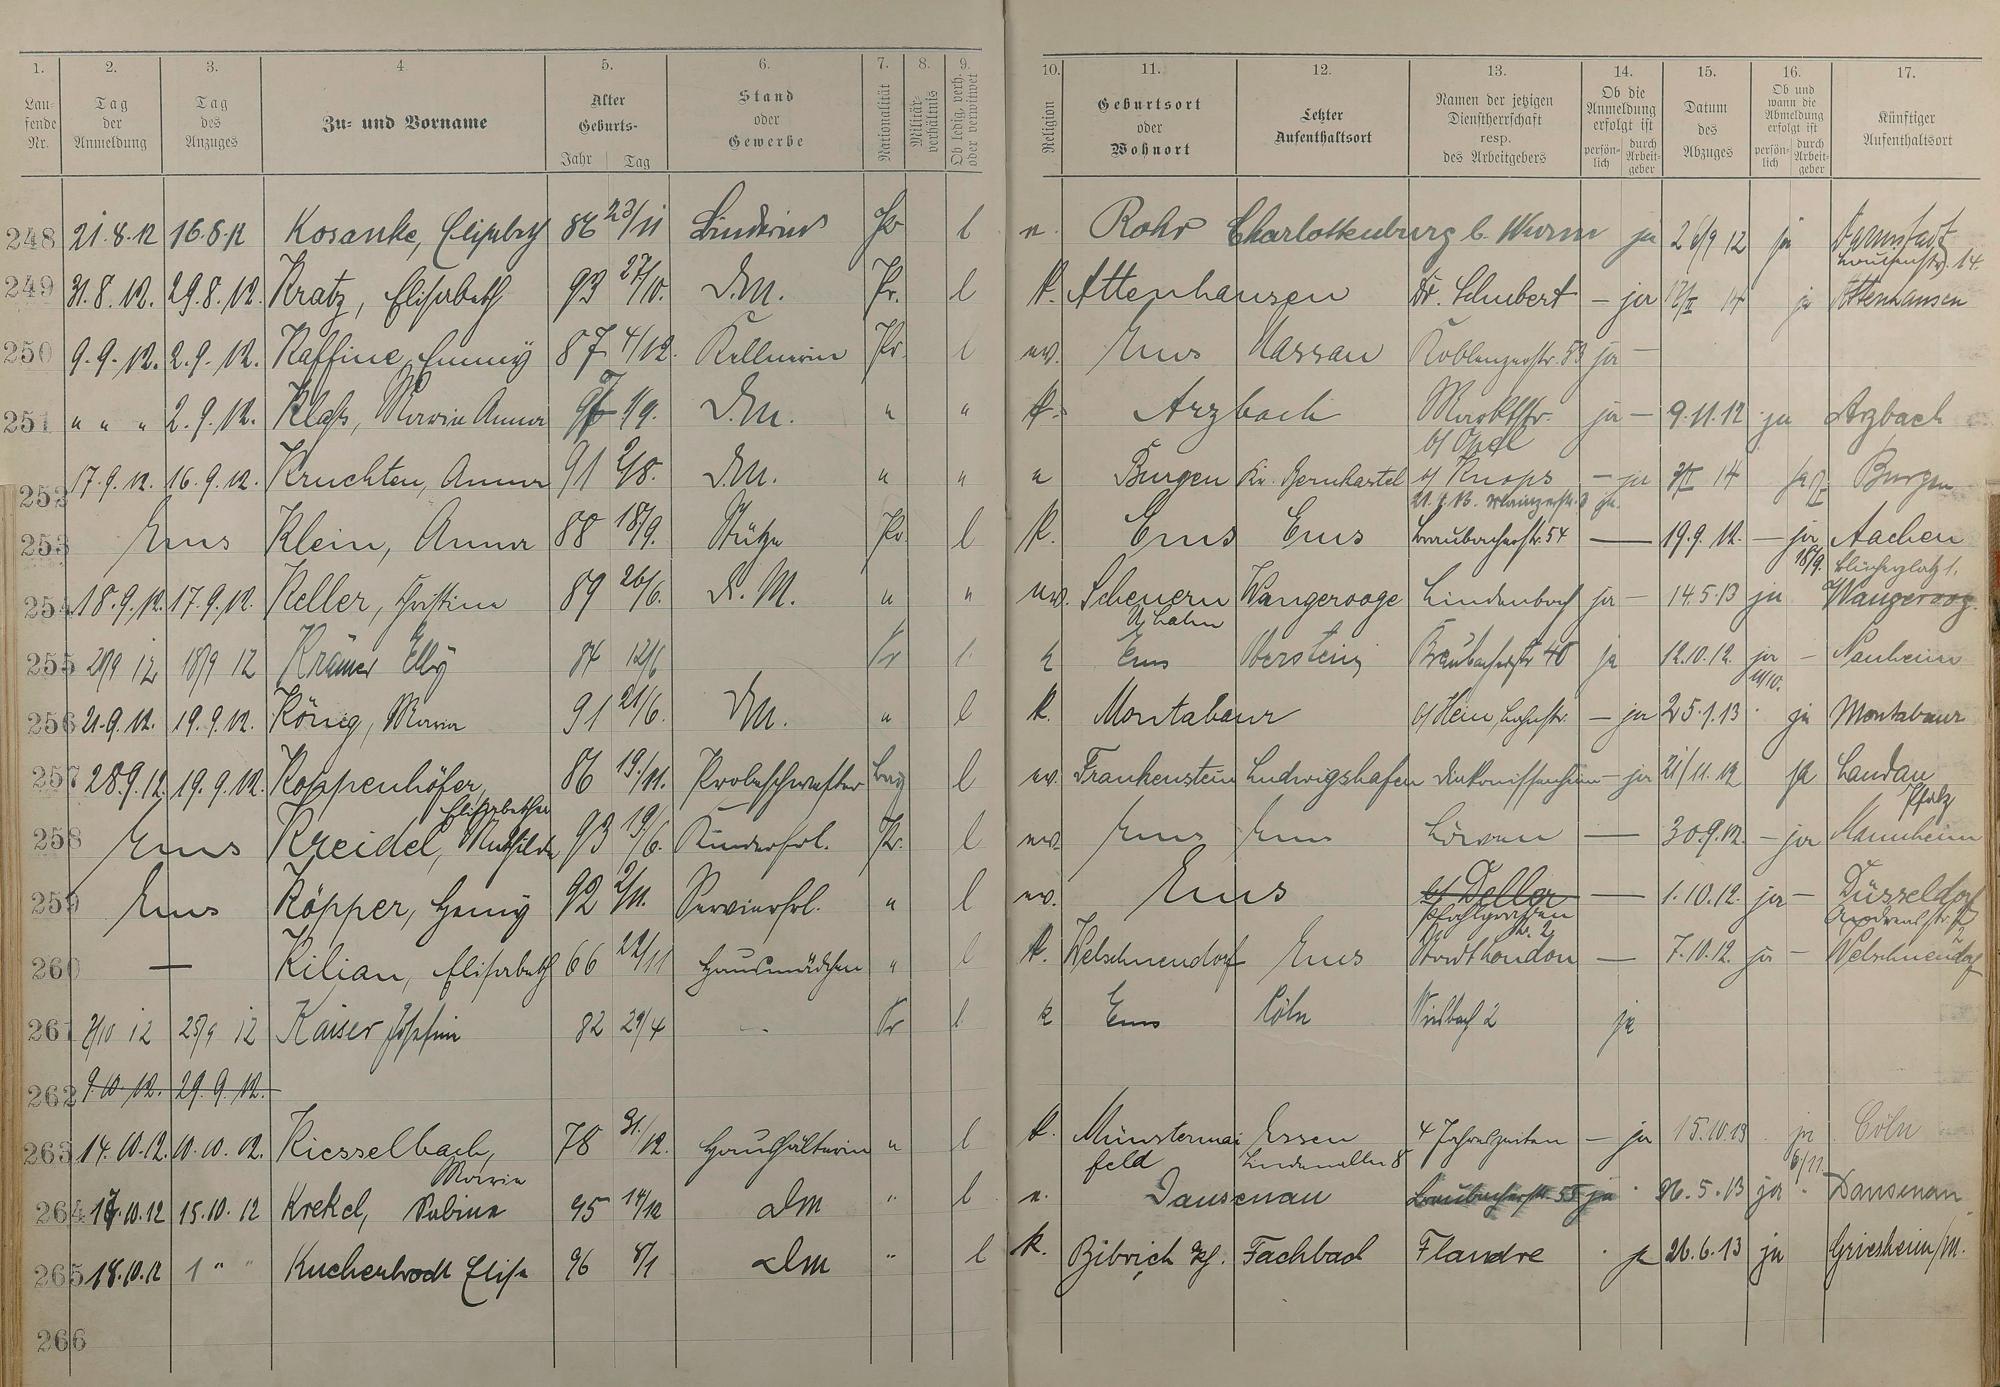 1. 2. 3. 4. 5. 6. 7. 8. 9. 10. 11. 12. 13. 14. 15. 16. 17.
Lau-
fende
Nr.
Tag
der
Anmeldung
Tag
des
Anzuges
Zu- und Vorname
Alter
Geburts-
Jahr Tag
Stand
oder
Gewerbe
Nationalität
Militär-
verhältnis
Ob ledig, verh.
oder verwitwet
Religion
Geburtsort
oder
Wohnort
Letzter
Aufenthaltsort
Namen der jetzigen
Dienstherrschaft
resp.
des Arbeitgebers
Ob die
Anmeldung
erfolgt ist
persön-
lich
durch
Arbeit-
geber
Datum
des
Abzuges
Ob und
wann die
Abmeldung
erfolgt ist
persön-
lich
durch
Arbeit-
geber
Künftiger
Aufenthaltsort
248 21.8.12 16.8.12 Kosanke, Elisabeth 86 23/11 Pr l Rohr Charlottenburg b. Wurm ja 26/9 12 ja Darmstadt
14.
249 31.8.12. 29.8.12. Kratz, Elisabeth 93 27/10. D.M. Pr. l K. Attenhausen Dr. Schubert — ja 14 ja Attenhausen
250 9.9.12. 2.9.12. Kaffine, Emmy 87 4/12. Kellnerin Pr. l ev. Ems Nassau Koblenzerstr. 53 ja —
251 " " " 2.9.12. Klaß, Maria Anna 1/9. D.M. " " K. Arzbach Marktstr. ja — 9.11.12 ja Arzbach
b/ Opel
252 17.9.12. 16.9.12. Kruchten, Anna 91 2/8. D.M. " " " Burgen Kr. Bernkastel b/ Knops — ja 14 ja Burgen
253 Ems Klein, Anna 88 18/9. Stütze Pr l K. Ems Ems Braubacherstr. 54 — 19.9.12. — ja Aachen
18/9. Blücherplatz 1.
254 18.9.12. 17.9.12. Keller, Christine 89 26/6. D.M. " " ev. Scheuern Wangerooge Lindenbach ja — 14.5.13 ja Wangeroog.
255 20/9 12 18/9 12 Krämer Elly 84 12/6 Pr l k Ems Oberstein Braubacherstr 40 ja 12.10.12. ja — Nauheim
256 21.9.12. 19.9.12. König, Maria 91 21/6. DM. " l K. Montabaur b/ Hein, Lahnstr. — ja 25.1.13 ja Montabaur
257 28.9.12. 19.9.12. Koppenhöfer, 86 19./11. Probeschwester Bay l ev. Frankenstein Ludwigshafen Diakonissenheim — ja 21/11.12 ja Landau
Elisabetha Pfalz
258 Ems Kreidel, Mathilde 93 19/6. Kinderfrl. Pr. l ev. Ems Ems Löwen — 30.9.12. — ja Mannheim
259 Ems Köpper, Henny 92 2/11. Servierfrl. " l ev. Ems b/ Deller — 1.10.12. ja — Düsseldorf
Pfahlgraben
260 — Kilian, Elisabeth 66 22/11 Hausmädchen " l K. Welschneudorf Ems Stadt London — 7.10.12. ja — Welschneudorf
261 2/10 12 25/9 12 Kaiser Josefine 82 29/4 Pr l k Ems Cöln Wiesbach 2 ja
262 9.10.12. 29.9.12.
263 14.10.12. 10.10.12. Kiesselbach, 78 31./12. Haushälterin " l K. Münstermai Essen 4 Jahreszeiten — ja 15.10.13 ja Cöln
Maria feld Lindenallee 8 6/11
264 17.10.12 15.10.12 Krekel, Sabine 95 14/12 DM " l e. Dausenau Braubacherstr. 55 ja 26.5.13 ja Dausenau
265 18.10.12 1 " " Kuchenbrodt Elise 96 8/1 DM " l k. Bibrich Fachbach Flandre ja 26.6.13 ja Griesheim/M.
266